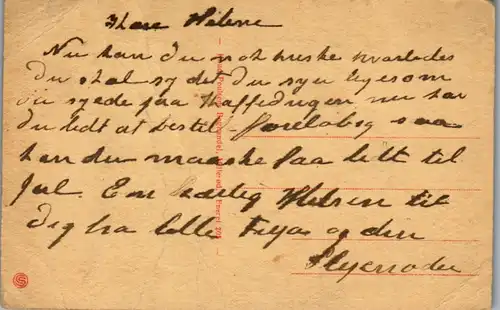 Kære Helene
Nu kan du nok huske hvorledes
du skal sy det du syr ligesom
du syede paa Kaffedugen nu har
du lidt at bestil foreløbig saa
kan du maaske faa lidt til
Jul. En kærlig Hilsen til
dig fra lille og din